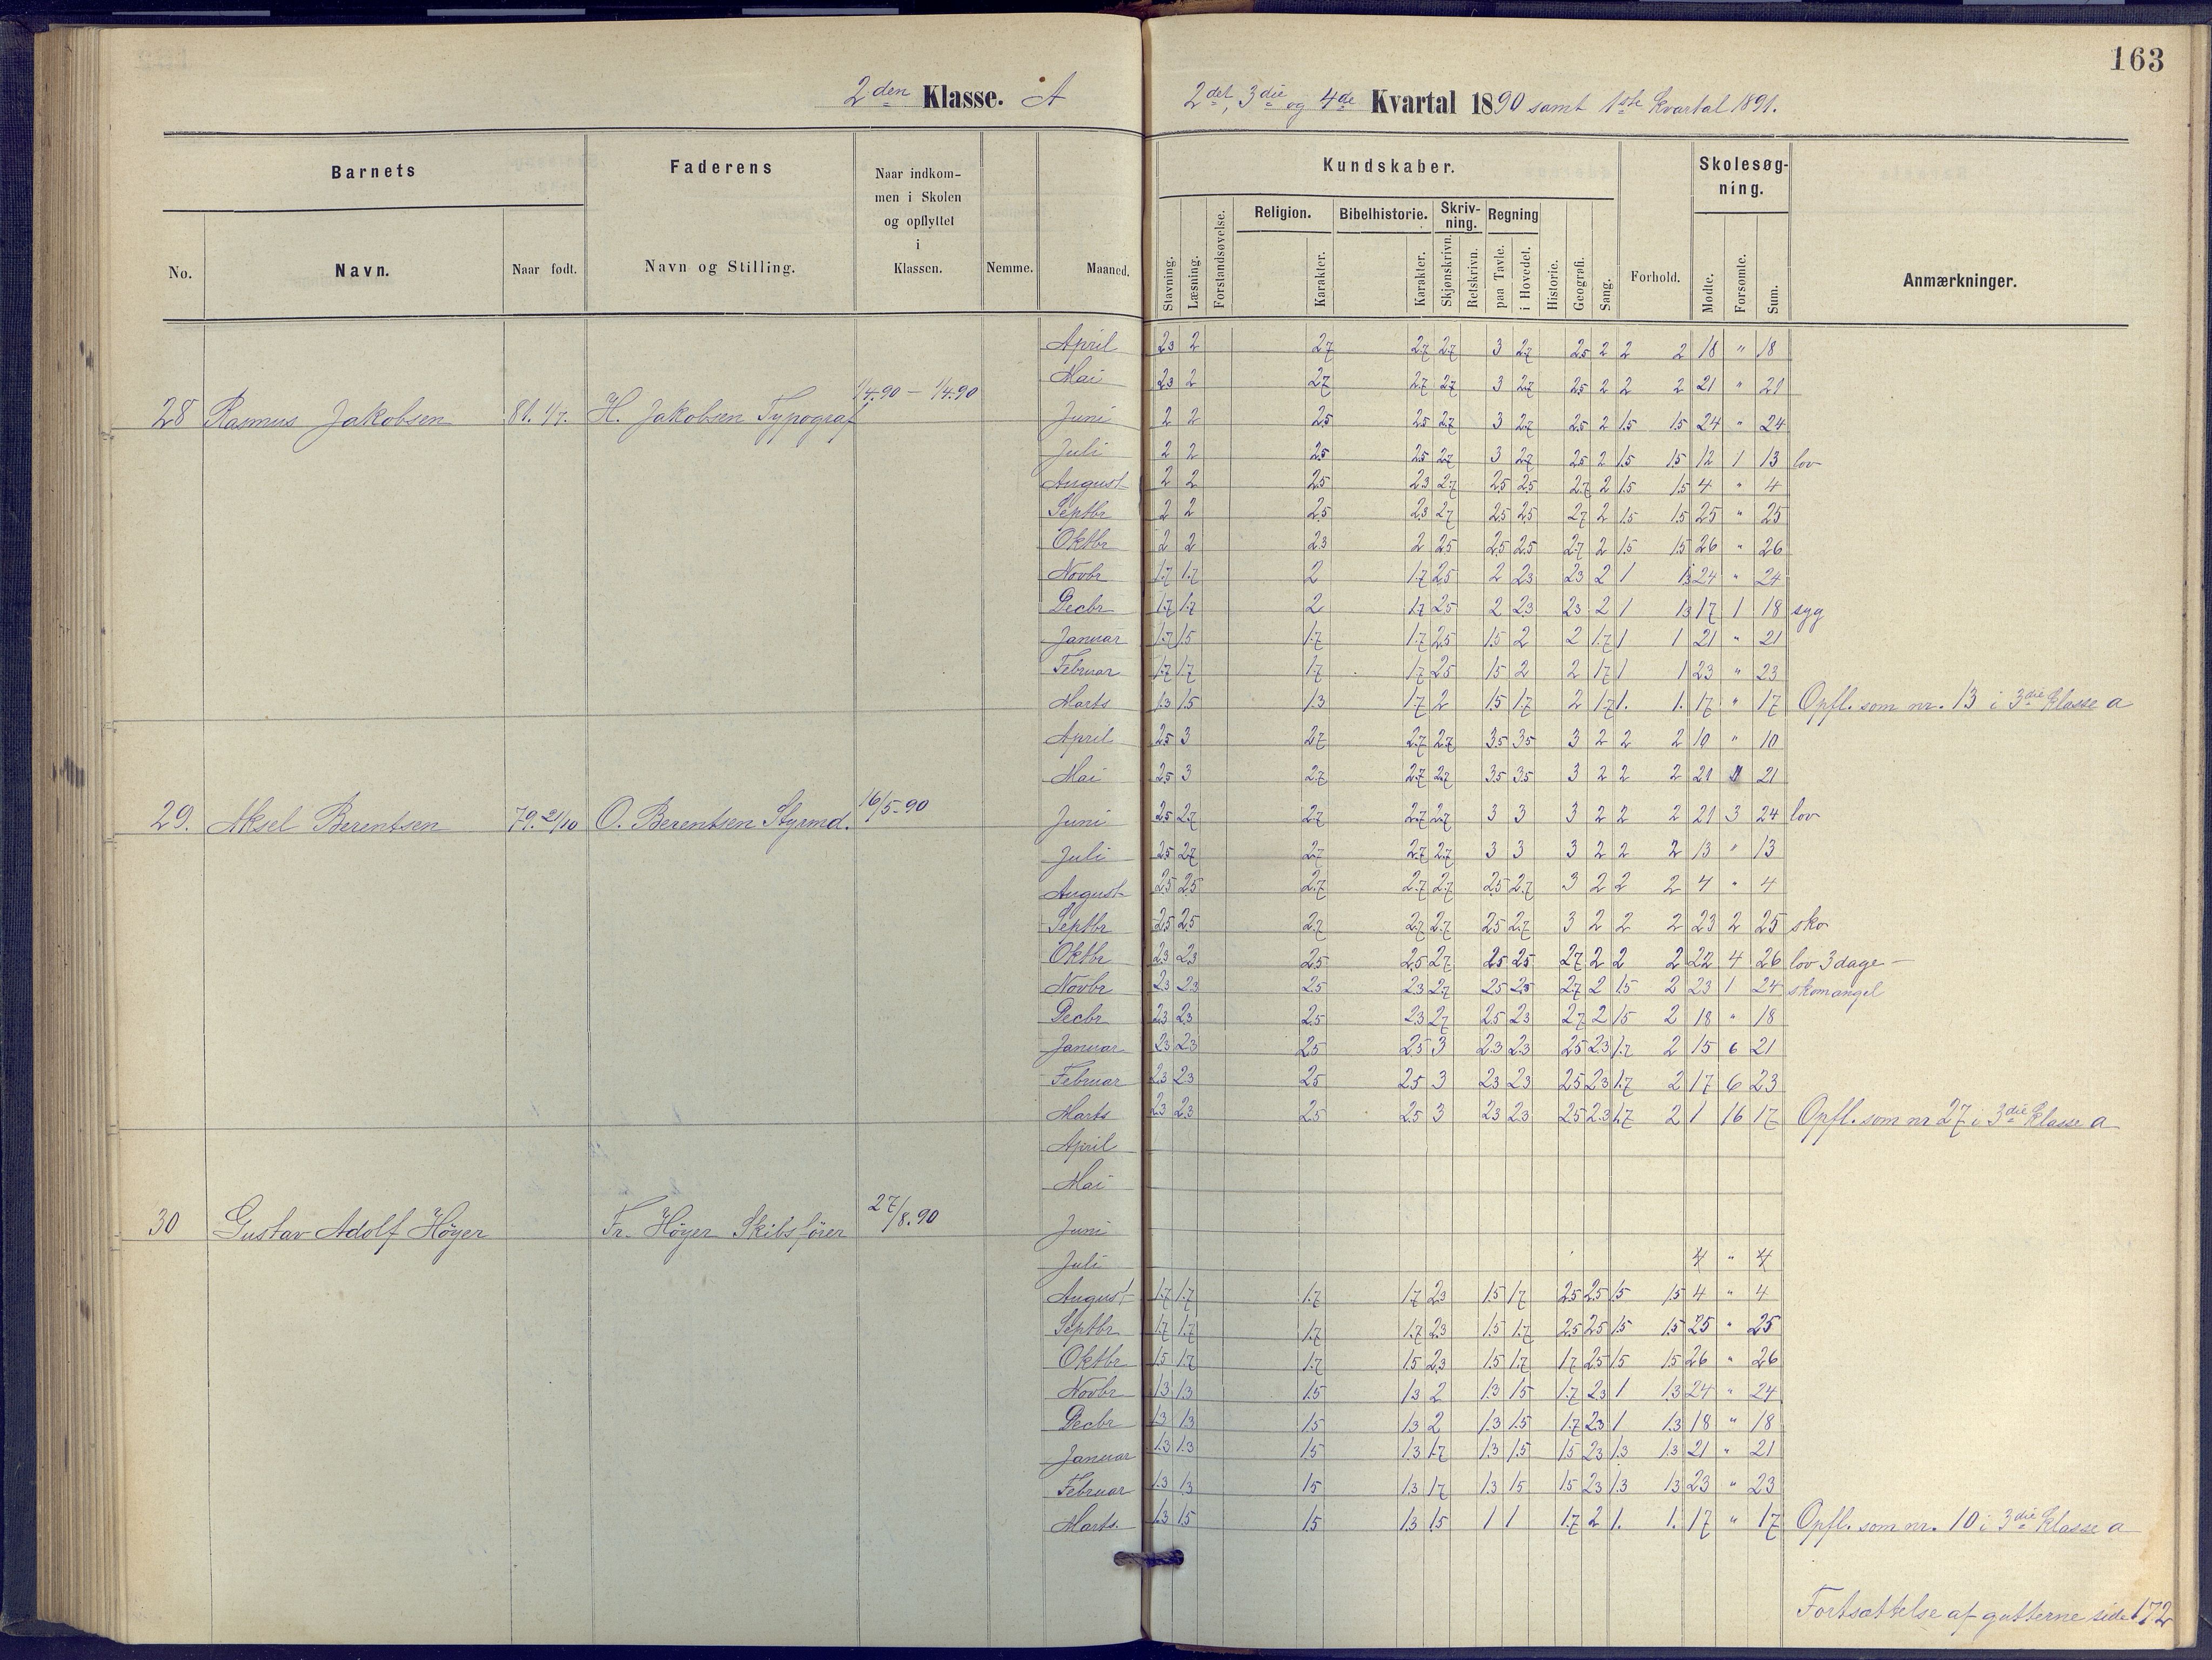 163
2den Klasse. A 2det, 3die og 4de Kvartal 1890 samt 1ste Kvartal 1891.
Barnets Faderens Naar indkommen i Skolen og opflyttet i Klassen. Nemme. Maaned. Kundskaber. Forhold. Skolesøgning. Anmærkninger.
No. Navn. Naar født. Navn og Stilling.
Stavning. Læsning. Forstandsøvelse. Religion. Karakter. Bibelhistorie. Karakter. Skrivning. Skjønskrivn. Retskrivn. Regning paa Tavle. i Hovedet. Historie. Geografi. Sang. Mødte. Forsømte. Sum.
28 Rasmus Jakobsen 81. 1/7. H. Jakobsen Typograf 1/4.90 – 1/4.90
April 2.3 2 2.7 2.7 2.7 3 2.7 2.5 2 2 2 18 " 18
Mai 2.3 2 2.7 2.7 2.7 3 2.7 2.5 2 2 2 21 " 21
Juni 2 2 2.5 2.5 2.7 3 2.7 2.5 2 1.5 1.5 24 " 24
Juli 2 2 2.5 2.5 2.7 3 2.7 2.5 2 1.5 1.5 12 1 13 lov
August 2 2 2.5 2.3 2.7 2.5 2.5 2.7 2 1.5 1.5 4 " 4
Septbr 2 2 2.5 2.3 2.7 2.5 2.5 2.7 2 1.5 1.5 25 " 25
Oktbr 2 2 2.3 2 2.5 2.5 2.5 2.7 2 1.5 1.5 26 " 26
Novbr 1.7 1.7 2 1.7 2.5 2 2.3 2.3 2 1 1.3 24 " 24
Decbr 1.7 1.7 2 1.7 2.5 2 2.3 2.3 2 1 1.3 17 1 18 syg
Januar 1.7 1.5 1.7 1.7 2.5 1.5 2 2 1.7 1 1 21 " 21
Februar 1.7 1.7 1.7 1.7 2.5 1.5 2 2 1.7 1 1 23 " 23
Marts 1.3 1.5 1.3 1.7 2 1.5 1.7 2 1.7 1. 1. 17 " 17 Opfl. som nr. 13 i 3die Klasse a
29. Aksel Berentsen 79. 21/10 O. Berentsen Styrmd. 16/5-90
April 2.5 3 2.7 2.7 2.7 3.5 3.5 3 2 2 2 10 " 10
Mai 2.5 3 2.7 2.7 2.7 3.5 3.5 3 2 2 2 21 " 21
Juni 2.5 2.7 2.7 2.7 2.7 3 3 3 2 2 2 21 3 24 lov
Juli 2.5 2.7 2.7 2.7 2.7 3 3 3 2 2 2 13 " 13
August 2.5 2.5 2.7 2.7 2.7 2.5 2.7 3 2 2 2 4 " 4
Septbr 2.5 2.5 2.7 2.7 2.7 2.5 2.7 3 2 2 2 23 2 25 sko
Oktbr 2.3 2.3 2.5 2.5 2.7 2.5 2.5 2.7 2 2 2 22 4 26 lov 3 dage –
Novbr 2.3 2.3 2.5 2.3 2.7 2.5 2.3 2.7 2 1.5 2 23 1 24 skomangel
Decbr 2.3 2.3 2.5 2.3 2.7 2.5 2.3 2.7 2 1.5 2 18 " 18
Januar 2.3 2.3 2.5 2.5 3 2.3 2.3 2.5 2.3 1.7 2 15 6 21
Februar 2.3 2.3 2.5 2.5 3 2.3 2.3 2.5 2.3 1.7 2 17 6 23
Marts 2.3 2.3 2.5 2.5 3 2.3 2.3 2.5 2.3 1.7 2 1 16 17 Opfl. som nr 27 i 3die Klasse a
30 Gustav Adolf Höyer Fr. Höyer Skibsfører 27/8.90
April
Mai
Juni
Juli 4 " 4
August 1.7 1.7 1.7 1.7 2.3 1.5 1.7 2.5 2.5 1.5 1.5 4 " 4
Septbr 1.7 1.7 1.7 1.7 2.3 1.5 1.7 2.5 2.5 1.5 1.5 25 " 25
Oktbr 1.5 1.7 1.7 1.5 2.3 1.5 1.7 1.7 2.5 1.5 1.5 26 " 26
Novbr 1.3 1.3 1.5 1.3 2 1.3 1.5 1.7 2.3 1 1.3 24 " 24
Decbr 1.3 1.3 1.5 1.3 2 1.3 1.5 1.7 2.3 1 1.3 18 " 18
Januar 1.3 1.3 1.5 1.3 1.7 1.3 1.5 1.5 2.3 1.3 1.3 21 " 21
Februar 1.3 1.3 1.5 1.3 1.7 1.3 1.5 1.5 2.3 1.3 1.3 23 " 23
Marts. 1.3 1.5 1.5 1.3 1.5 1 1 1.7 2 1. 1. 17 " 17 Opfl. som nr. 10 i 3die Klasse a
Fortsættelse af gutterne side 172